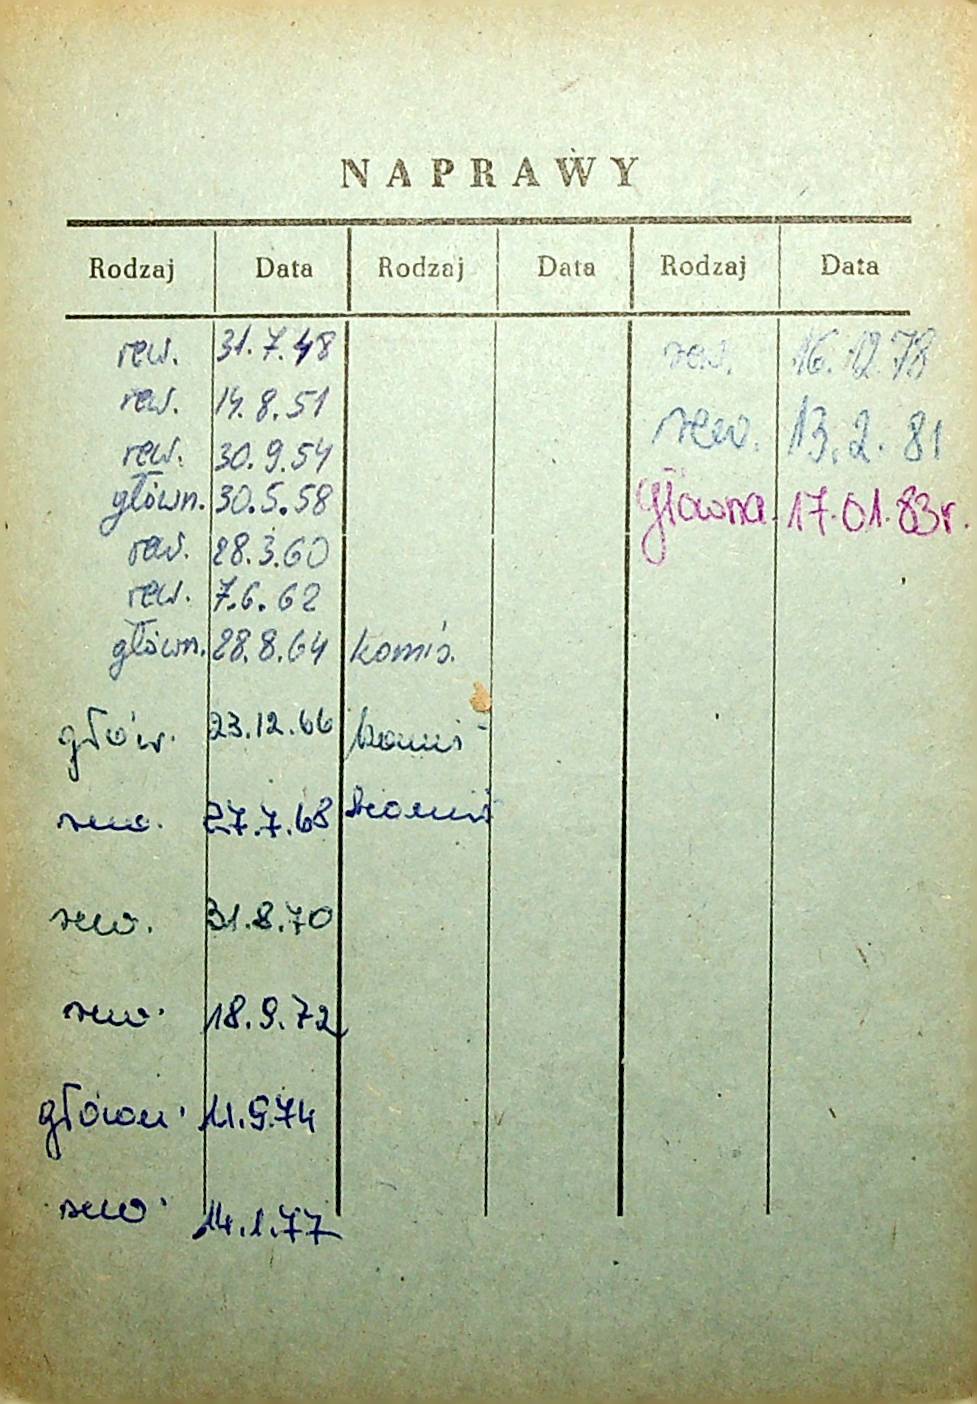 NAPRAWY
Rodzaj Data Rodzaj Data Rodzaj Data
rew. 31.7.48 rew. 16.12.78
rew. 14.8.51 rew. 13.2.81
rew. 30.9.54
główn. 30.5.58 Główna 17.01.83r.
rew. 28.3.60
rew. 7.6.62
główn. 28.8.64 komis.
głów. 23.12.66 komis
rew. 27.7.68 komis
rew. 31.8.70
rew. 18.9.72
główn. 11.9.74
rew. 14.1.77